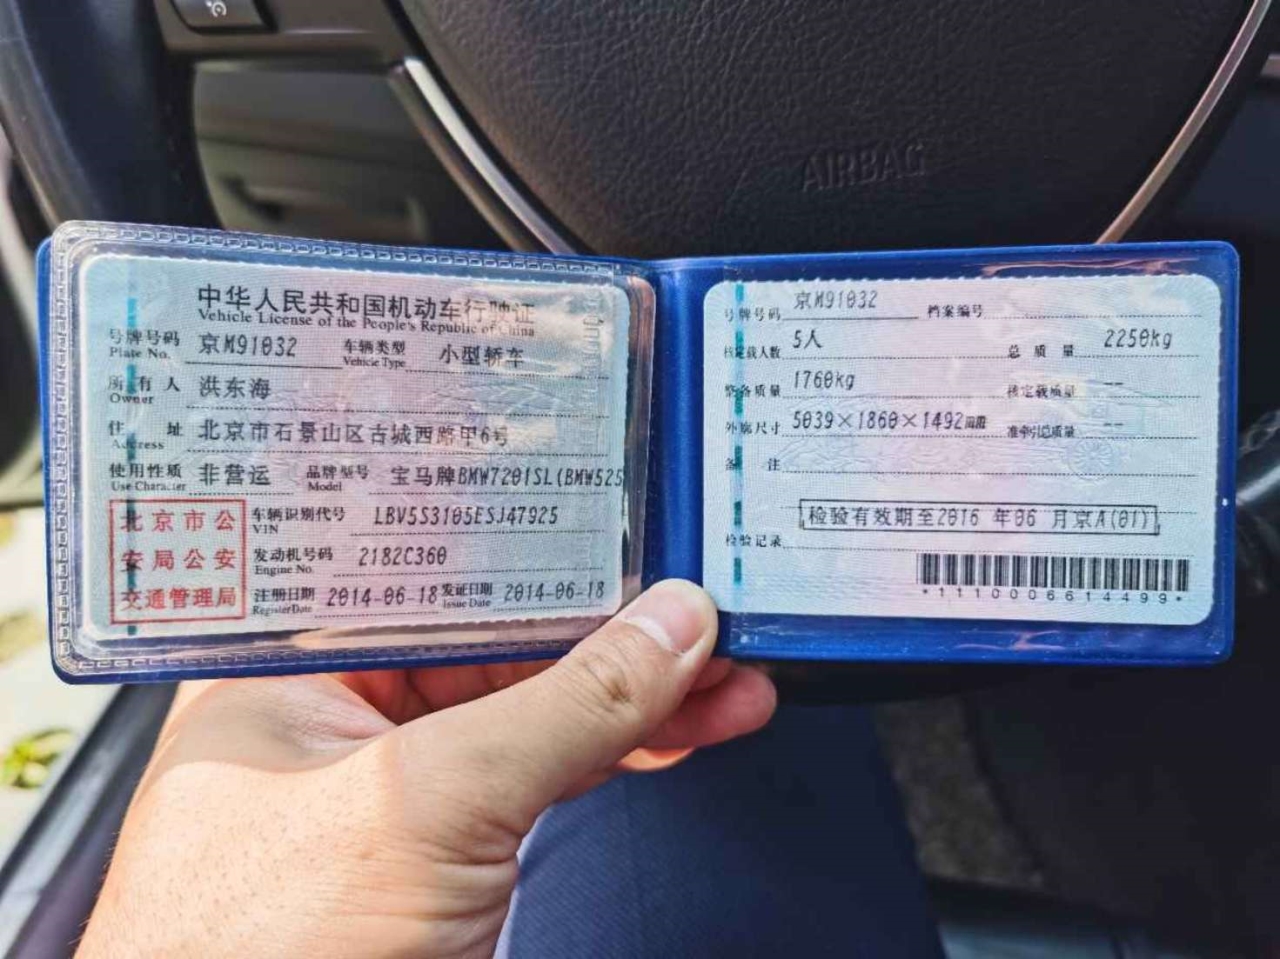 AIRBAG
中华人民共和国机动车行驶证
Vehicle License of the People's Republic of China
号牌号码 京M91032 车辆类型 小型轿车
Plate No. Vehicle Type
所有人 洪东海
Owner
住址 北京市石景山区古城西路甲6号
Address
使用性质 非营运 品牌型号 宝马牌BMW7201SL(BMW525
Use Character Model
北京市公
安局公安
交通管理局
车辆识别代号 LBV5S3105ESJ47925
VIN
发动机号码 2182C360
Engine No.
注册日期 2014-06-18 发证日期 2014-06-18
Register Date Issue Date
号牌号码 京M91032 档案编号
核定载人数 5人 总质量 2250kg
整备质量 1760kg 核定载质量 --
外廓尺寸 5039×1860×1492mm 准牵引总质量 --
备注
检验有效期至2016 年06 月京A(01)
检验记录
*1110006614499*